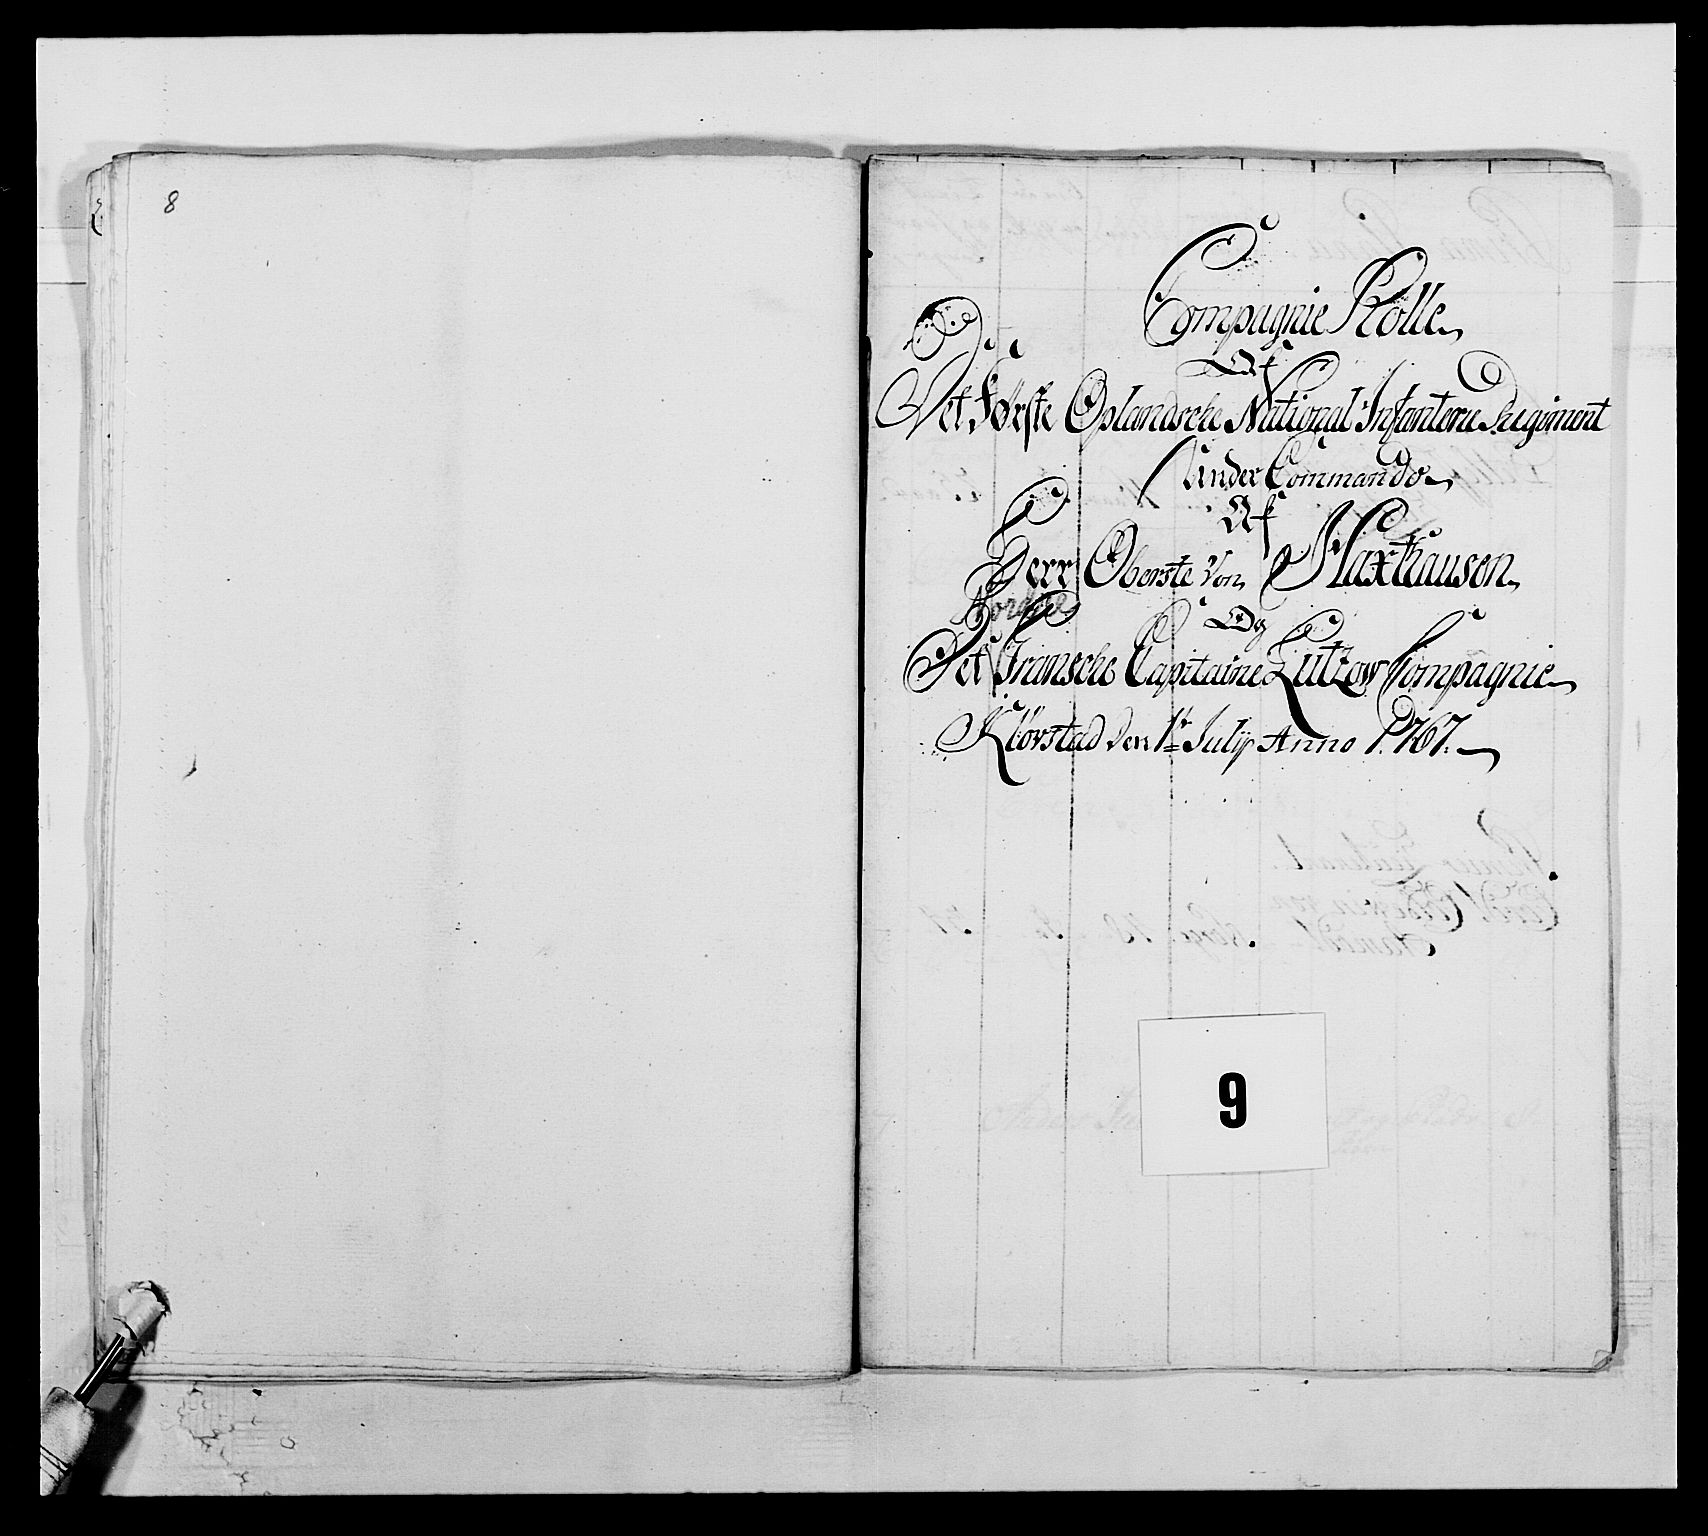 8
Compagnie Rolle
Af
Det Første Oplandsche National Infanterie Regiment
Under Commando
Af
Herr Oberste Von Haxthausen
Nordre
Og
Det Transche Capitaine Lutzow Compagnie
Klørstad den 1te Julij Anno 1767.
9